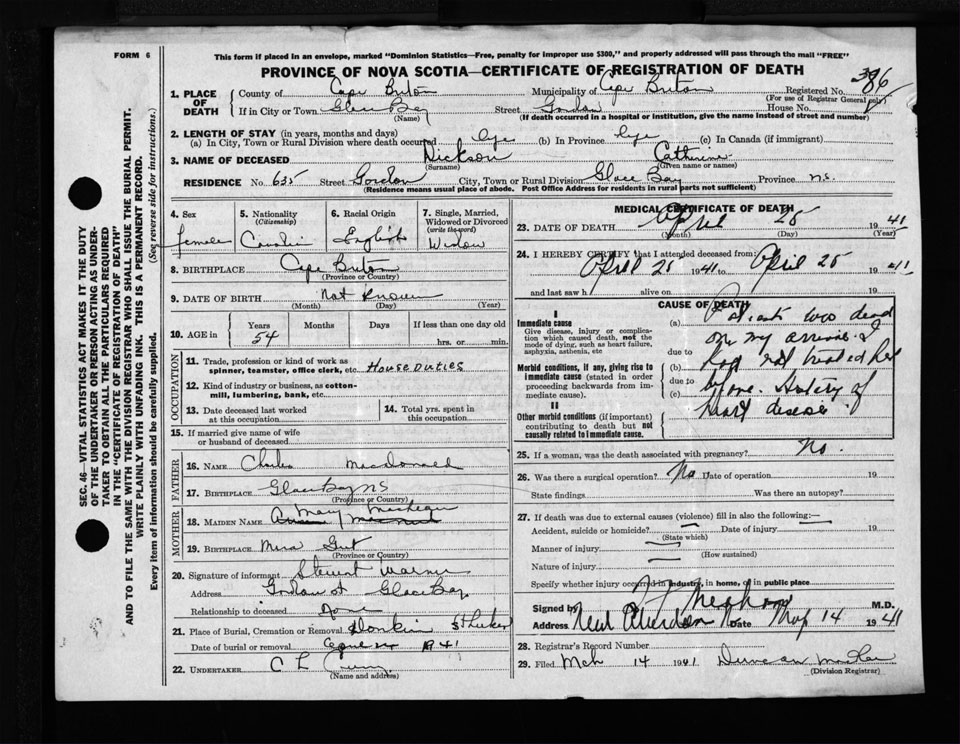 FORM 6
This form if placed in an envelope, marked "Dominion Statistics—Free, penalty for improper use $300," and properly addressed will pass through the mail "FREE"
PROVINCE OF NOVA SCOTIA—CERTIFICATE OF REGISTRATION OF DEATH
1. PLACE OF DEATH
County of Cape Breton Municipality of Cape Breton Registered No. 86
(For use of Registrar General only)
If in City or Town Glace Bay Street Gordon House No.
(Name) (If death occurred in a hospital or institution, give the name instead of street and number)
2. LENGTH OF STAY (in years, months and days)
(a) In City, Town or Rural Division where death occurred life (b) In Province life (c) In Canada (if immigrant)
3. NAME OF DECEASED Dickson Catherine
(Surname) (Given name or names)
RESIDENCE No. 635 Street Gordon City, Town or Rural Division Glace Bay Province N.S.
(Residence means usual place of abode. Post Office Address for residents in rural parts not sufficient)
4. Sex female
5. Nationality (Citizenship) Canadian
6. Racial Origin English
7. Single, Married, Widowed or Divorced (write the word) Widow
8. BIRTHPLACE Cape Breton
(Province or Country)
9. DATE OF BIRTH Not Known
(Month) (Day) (Year)
10. AGE in Years 54 Months Days If less than one day old hrs. or min.
OCCUPATION
11. Trade, profession or kind of work as spinner, teamster, office clerk, etc. House Duties
12. Kind of industry or business, as cotton-mill, lumbering, bank, etc.
13. Date deceased last worked at this occupation
14. Total yrs. spent in this occupation
15. If married give name of wife or husband of deceased
FATHER
16. NAME Charles Macdonald
17. BIRTHPLACE Glace Bay NS
(Province or Country)
MOTHER
18. MAIDEN NAME Mary
19. BIRTHPLACE Mira Gut
(Province or Country)
20. Signature of informant Stewart Warner
Address Gordon st Glace Bay
Relationship to deceased None
21. Place of Burial, Cremation or Removal Donkin
Date of burial or removal 1941
22. UNDERTAKER C L Curry
(Name and address)
MEDICAL CERTIFICATE OF DEATH
23. DATE OF DEATH April 25 1941
(Month) (Day) (Year)
24. I HEREBY CERTIFY that I attended deceased from:
April 25 1941 to April 25 1941
and last saw h alive on 19
CAUSE OF DEATH
I
Immediate cause
Give disease, injury or complication which caused death, not the mode of dying, such as heart failure, asphyxia, asthenia, etc
Morbid conditions, if any, giving rise to immediate cause (stated in order proceeding backwards from immediate cause).
II
Other morbid conditions (if important) contributing to death but not causally related to immediate cause.
(a) Patient was dead
on my arrival. I
due to
(b) had not treated her
due to
(c) before. History of
heart disease.
25. If a woman, was the death associated with pregnancy? No.
26. Was there a surgical operation? No Date of operation 19
State findings Was there an autopsy?
27. If death was due to external causes (violence) fill in also the following:—
Accident, suicide or homicide? Date of injury 19
(State which)
Manner of injury
(How sustained)
Nature of injury
Specify whether injury occurred in industry, in home, or in public place
Signed by M.D.
Address New Aberdeen Date May 14 1941
28. Registrar's Record Number
29. Filed Mch 14 1941 Duncan
(Division Registrar)
SEC. 46—VITAL STATISTICS ACT MAKES IT THE DUTY
OF THE UNDERTAKER OR PERSON ACTING AS UNDER-
TAKER TO OBTAIN ALL THE PARTICULARS REQUIRED
IN THE "CERTIFICATE OF REGISTRATION OF DEATH"
AND TO FILE THE SAME WITH THE DIVISION REGISTRAR WHO SHALL ISSUE THE BURIAL PERMIT.
WRITE PLAINLY WITH UNFADING INK. THIS IS A PERMANENT RECORD.
Every item of information should be carefully supplied. (See reverse side for instructions.)